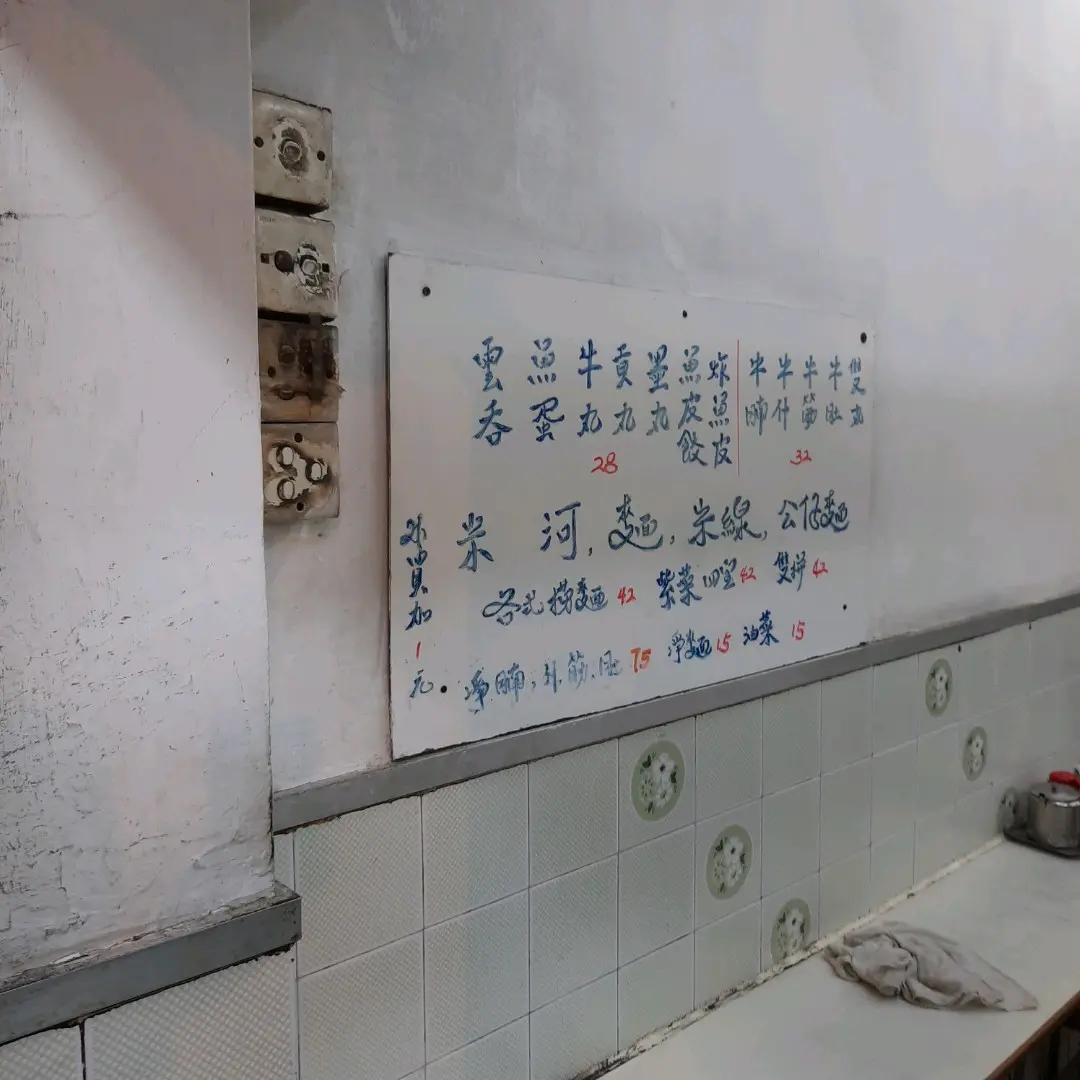 雲吞 魚蛋 牛丸 貢丸 墨丸 魚皮餃 炸魚皮
28
牛腩 牛什 牛筋 牛肚 雙丸
32
米 河, 麵, 米線, 公仔麵
各式撈麵 42 紫菜四宝 42 雙拼 42
淨腩, 什, 筋, 肚 75 淨麵 15 油菜 15
外賣加1元